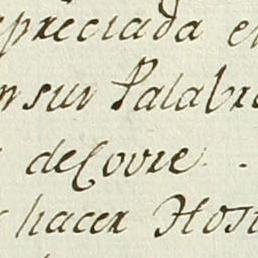 preciada e
n sur Palabr
deCovre.
hacer Host